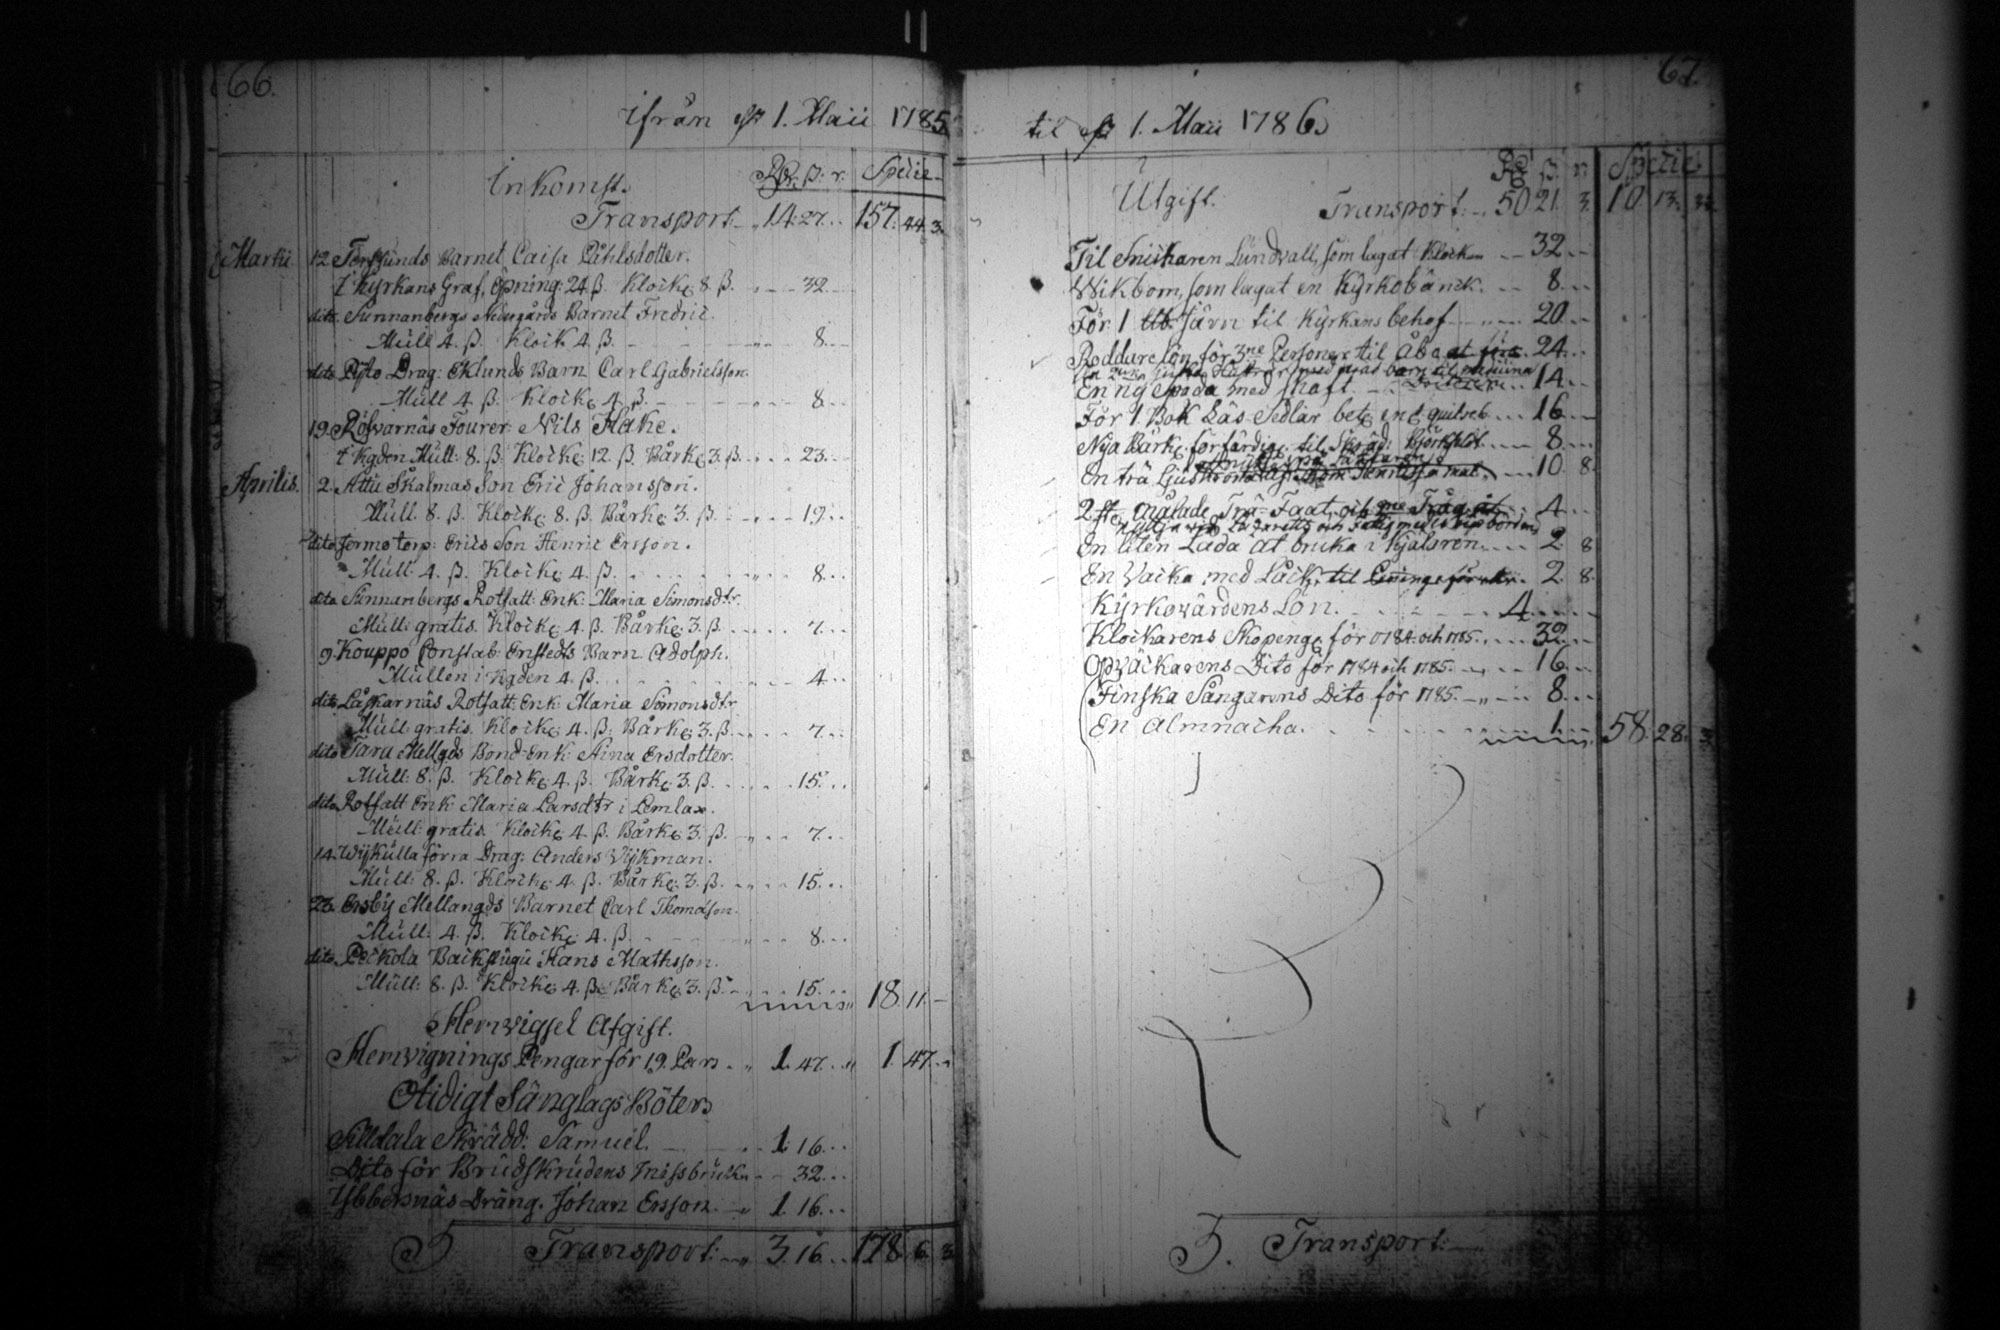 66.
ifrån d. 1. Maii 1785
Inkomst. Rdr. ß. r. Specie
Transport 14. 27. 157. 44. 3.
Martii 12. Barnet Caisa Påhlsdotter.
i Kyrkans Graf. Öpning: 24 ß. Klocke 8 ß. 32
dito Sunnanbergs Nedergårds Barnet Fredric.
Mull 4. ß. Klock 4. ß. 8
dito Drag: Eklunds Barn Carl Gabrielsson.
Mull 4 ß. Klocke 4 ß. 8
19. Rösvarnäs Fourer: Nils Flake.
i Kgden Mull: 8. ß: Klocke: 12. ß. Bårke 3. ß. 23
Aprilis. 2. Attu Skalmas Son Eric Johansson.
Mull. 8. ß. Klocke 8. ß. Bårke 3. ß. 19
dito Jermo torp: Erics Son Henric Ersson.
Mull: 4. ß. Klocke 4. ß. 8
dito Sunnanbergs Rotfatt: Enk: Maria Simonsdtr.
Mull: gratis. Klocke 4. ß. Bårke 3. ß. 7
9. Kouppo Constab: Enstedts Barn Adolph.
Mullen i Kgden 4. ß. 4
dito Låskarnäs Rotfatt: Enk: Maria Simonsdtr
Mull gratis. Klocke 4. ß. Bårke 3. ß. 7
dito Tara Mellgds Bond-Enk: Aina Ersdotter.
Mull: 8. ß. Klocke 4. ß. Bårke 3. ß. 15.
dito Rotfatt: Enk: Maria Larsdtr i Lemlax.
Mull: gratis. Klocke 4. ß. Bårke 3. ß. 7
14. Wijkulla förra Drag: Anders Vijkman.
Mull: 8. ß. Klocke 4. ß. Bårke 3. ß. 15
23. Ersby Mellangds Barnet Carl Thomasson.
Mull: 4. ß. Klocke 4. ß. 8
dito Pickola Hans Mathsson.
Mull: 8. ß. Klocke 4. ß. Bårke 3. ß. 15 18. 11.
Hemvigsel Afgift.
Hemvignings Pengar för 19. Par 1. 47. 1. 47.
Otidigt Sänglags Böter
Silldala Skrädd: Samuel. 1. 16
Dito för Brudskrudens missbruk 32
Ybbersnäs Dräng. Johan Ersson. 1. 16
Transport: 3. 16 178. 6. 3
67.
til d. 1. Maii 1786
Utgift. Rdr ß. r. Specie
Transport: 50 21. 3. 10. 13.
Til Snickaren Lundvall, som lagat Klockan 32
Wikbom, som lagat en Kyrkobänck. 8
För 1 Järn til Kyrkans behof 20
Roddare lön för 3ne Personer til Åbo 24
En ny Spada med skaft 14
För 1. Bok Läs-Sedlar 16
Nya Bårke förfärdig: til 8
En trä Ljuskrona 10. 8.
2 målade Trä-Faat, och 4
En liten Låda at bruka i 2 8
En Vacka med Låck, 2. 8.
Kyrkovärdens Lön. 4
Klockarens Skopenge för 1784. och 1785. 32
Opväckarens Dito för 1784 och 1785. 16
Finska Sångarens Dito för 1785. 8
En Almnacka. 1 58. 28. 3
Transport: